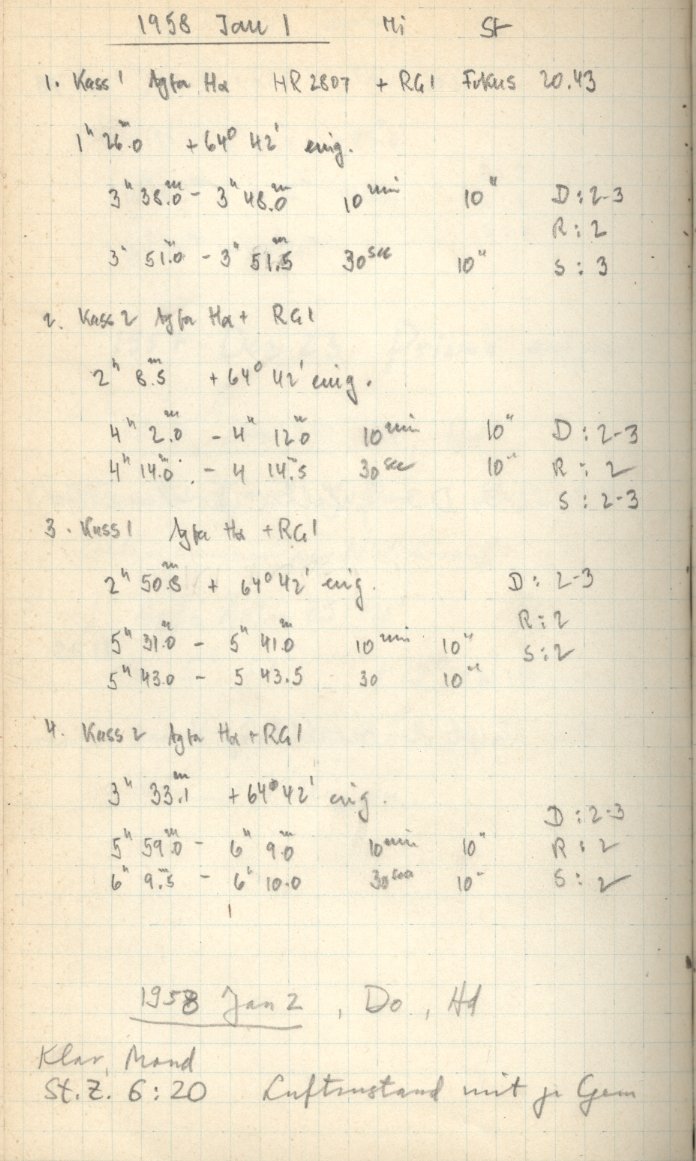 1958 Jan 1 Mi St
1. Kass 1 Agfa Hα HR 2807 + RG1 Fokus 20.43
1ʰ 26ᵐ.0 +64° 42' eing.
3ʰ 38ᵐ.0 - 3ʰ 48ᵐ.0 10ᵐⁱⁿ 10" D: 2-3
R: 2
3ʰ 51ᵐ.0 - 3ʰ 51ᵐ.5 30ˢᵉᶜ 10" S: 3
2. Kass 2 Agfa Hα + RG1
2ʰ 8ᵐ.5 +64° 42' eing.
4ʰ 2ᵐ.0 - 4ʰ 12ᵐ.0 10ᵐⁱⁿ 10" D: 2-3
4ʰ 14ᵐ.0 - 4 14ᵐ.5 30ˢᵉᶜ 10" R: 2
S: 2-3
3. Kass 1 Agfa Hα + RG1
2ʰ 50ᵐ.8 + 64° 42' eing. D: 2-3
R: 2
5ʰ 31ᵐ.0 - 5ʰ 41ᵐ.0 10ᵐⁱⁿ 10" S: 2
5ʰ 43.0 - 5 43.5 30 10"
4. Kass 2 Agfa Hα + RG1
3ʰ 33ᵐ.1 +64° 42' eing.
D: 2-3
5ʰ 59ᵐ.0 - 6ʰ 9ᵐ.0 10ᵐⁱⁿ 10" R: 2
6ʰ 9ᵐ.5 - 6ʰ 10.0 30ˢᵉᶜ 10" S: 2
1958 Jan 2, Do, Hd
Klar, Mond
St.Z. 6:20 Luftzustand mit γ Gem